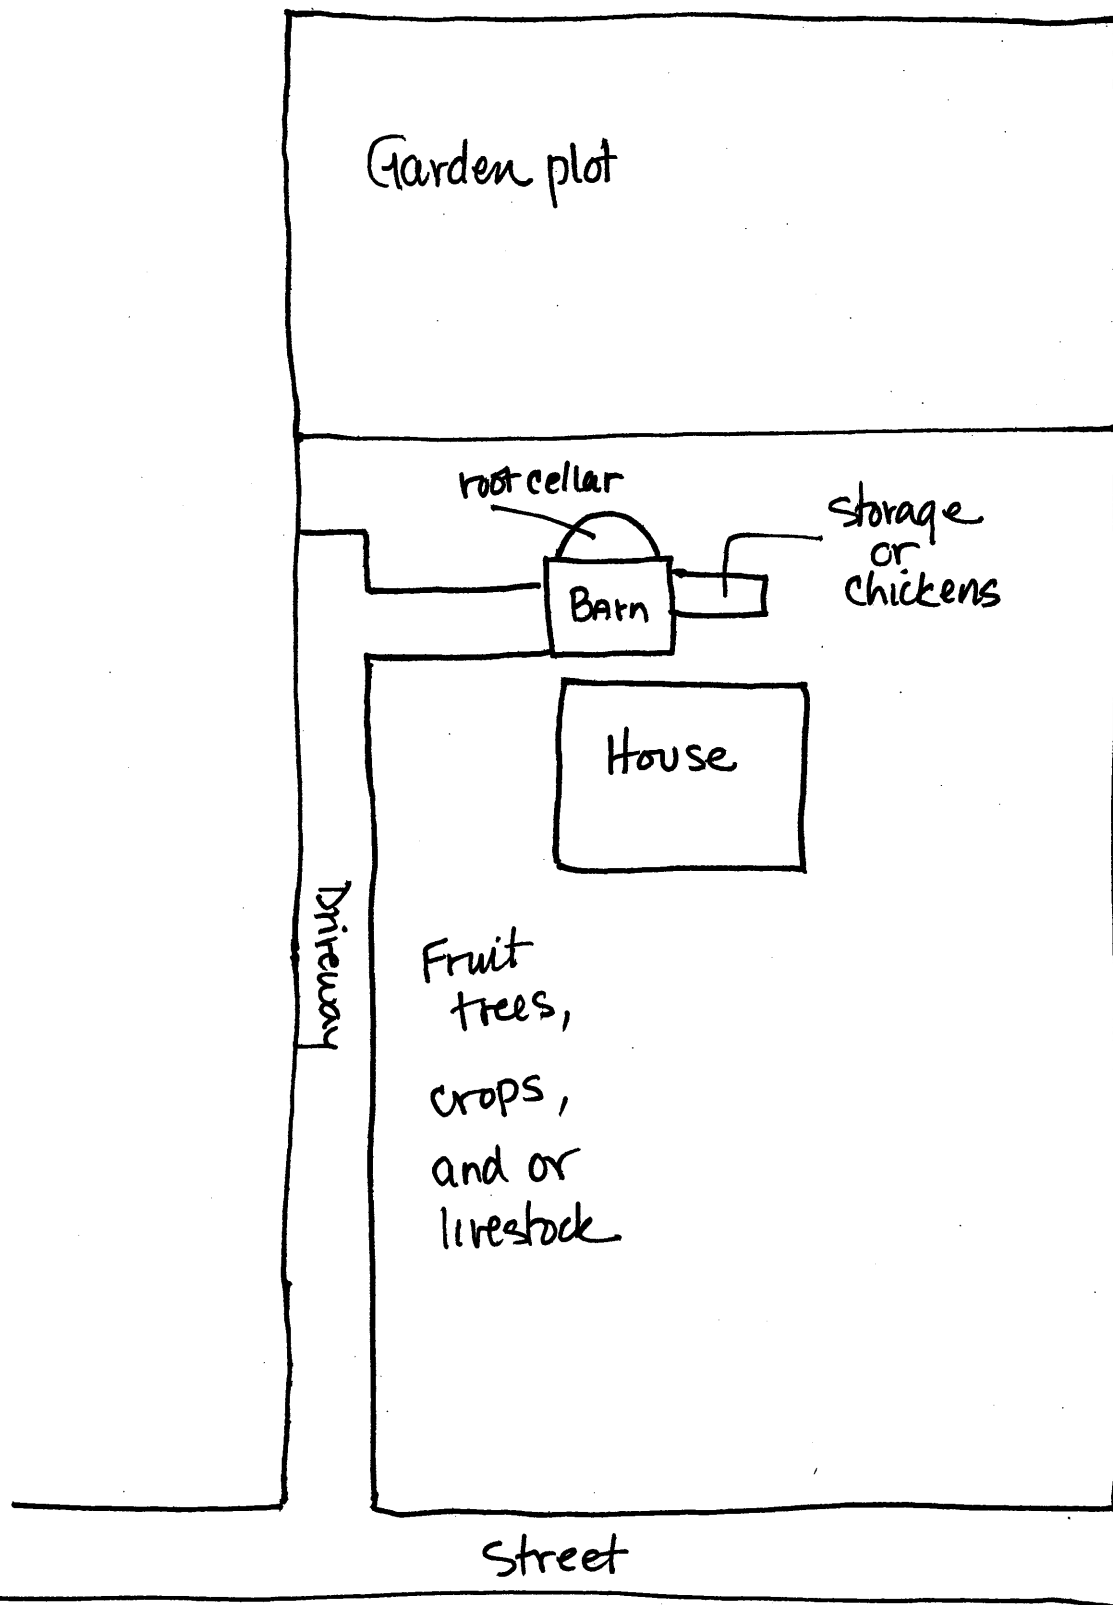 Garden plot
root cellar
storage
or
chickens
Barn
House
Driveway
Fruit
trees,
crops,
and or
livestock
Street